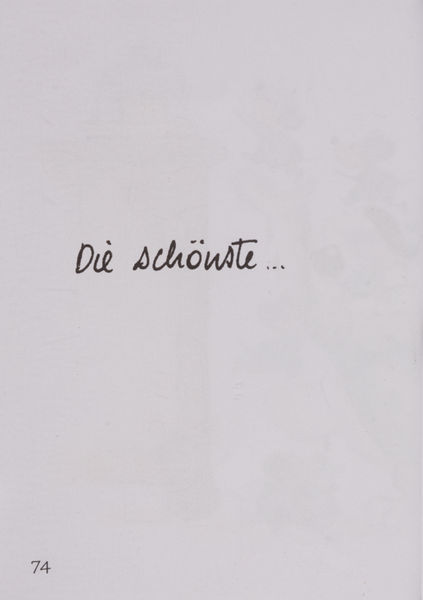 Die schönste...
74